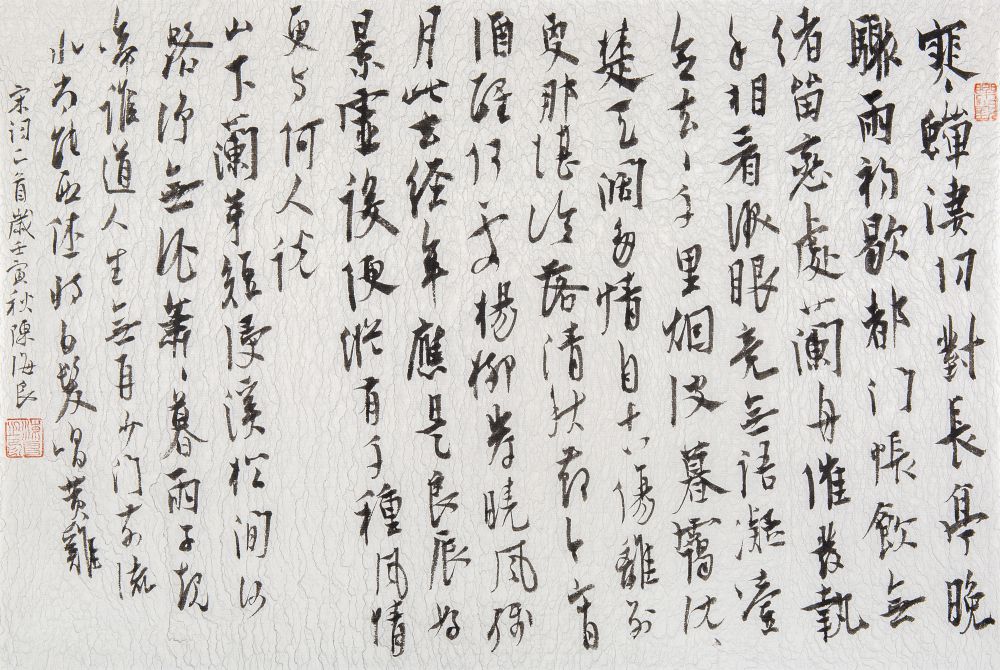 寒蟬淒切對長亭晚
驟雨初歇都门帳飲無
緒留戀處蘭舟催發執
手相看淚眼竟無語凝噎
念去〻千里烟波暮靄沈〻
楚天闊多情自古傷離別
更那堪冷落清秋節今宵
酒醒何處楊柳岸曉風殘
月此去經年應是良辰好
景虛設便縱有千種風情
更与何人說
山下蘭芽短浸溪松間沙
路淨無泥蕭〻暮雨子規
啼誰道人生無再少门前流
水尚能西休將白髮唱黃雞
宋詞二首歲壬寅秋陳海良